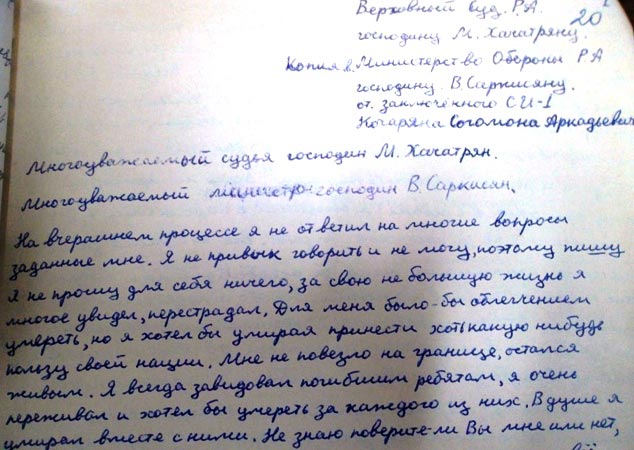 20
Верховный суд. Р.А.
господину М. Хачатряну.
Копия в. Министерство Обороны Р А
господину. В. Саркисяну.
от. заключённого СИ-1
Кочаряна Согомона Аркадьевич
Многоуважаемый судья господин М. Хачатрян.
Многоуважаемый министр господин В. Саркисян.
На вчерашнем процессе я не ответил на многие вопросы
заданные мне. Я не привык говорить и не могу, поэтому пишу
Я не прошу для себя ничего, за свою не большую жизнь я
многое увидел, перестрадал, Для меня было-бы облегчением
умереть, но я хотел бы умирая принести хоть какую нибудь
пользу своей нации. Мне не повезло на границе, остался
живым. Я всегда завидовал погибшим ребятам, я очень
переживал и хотел бы умереть за каждого из них. В душе я
умирал вместе с ними. Не знаю поверите-ли Вы мне или нет,